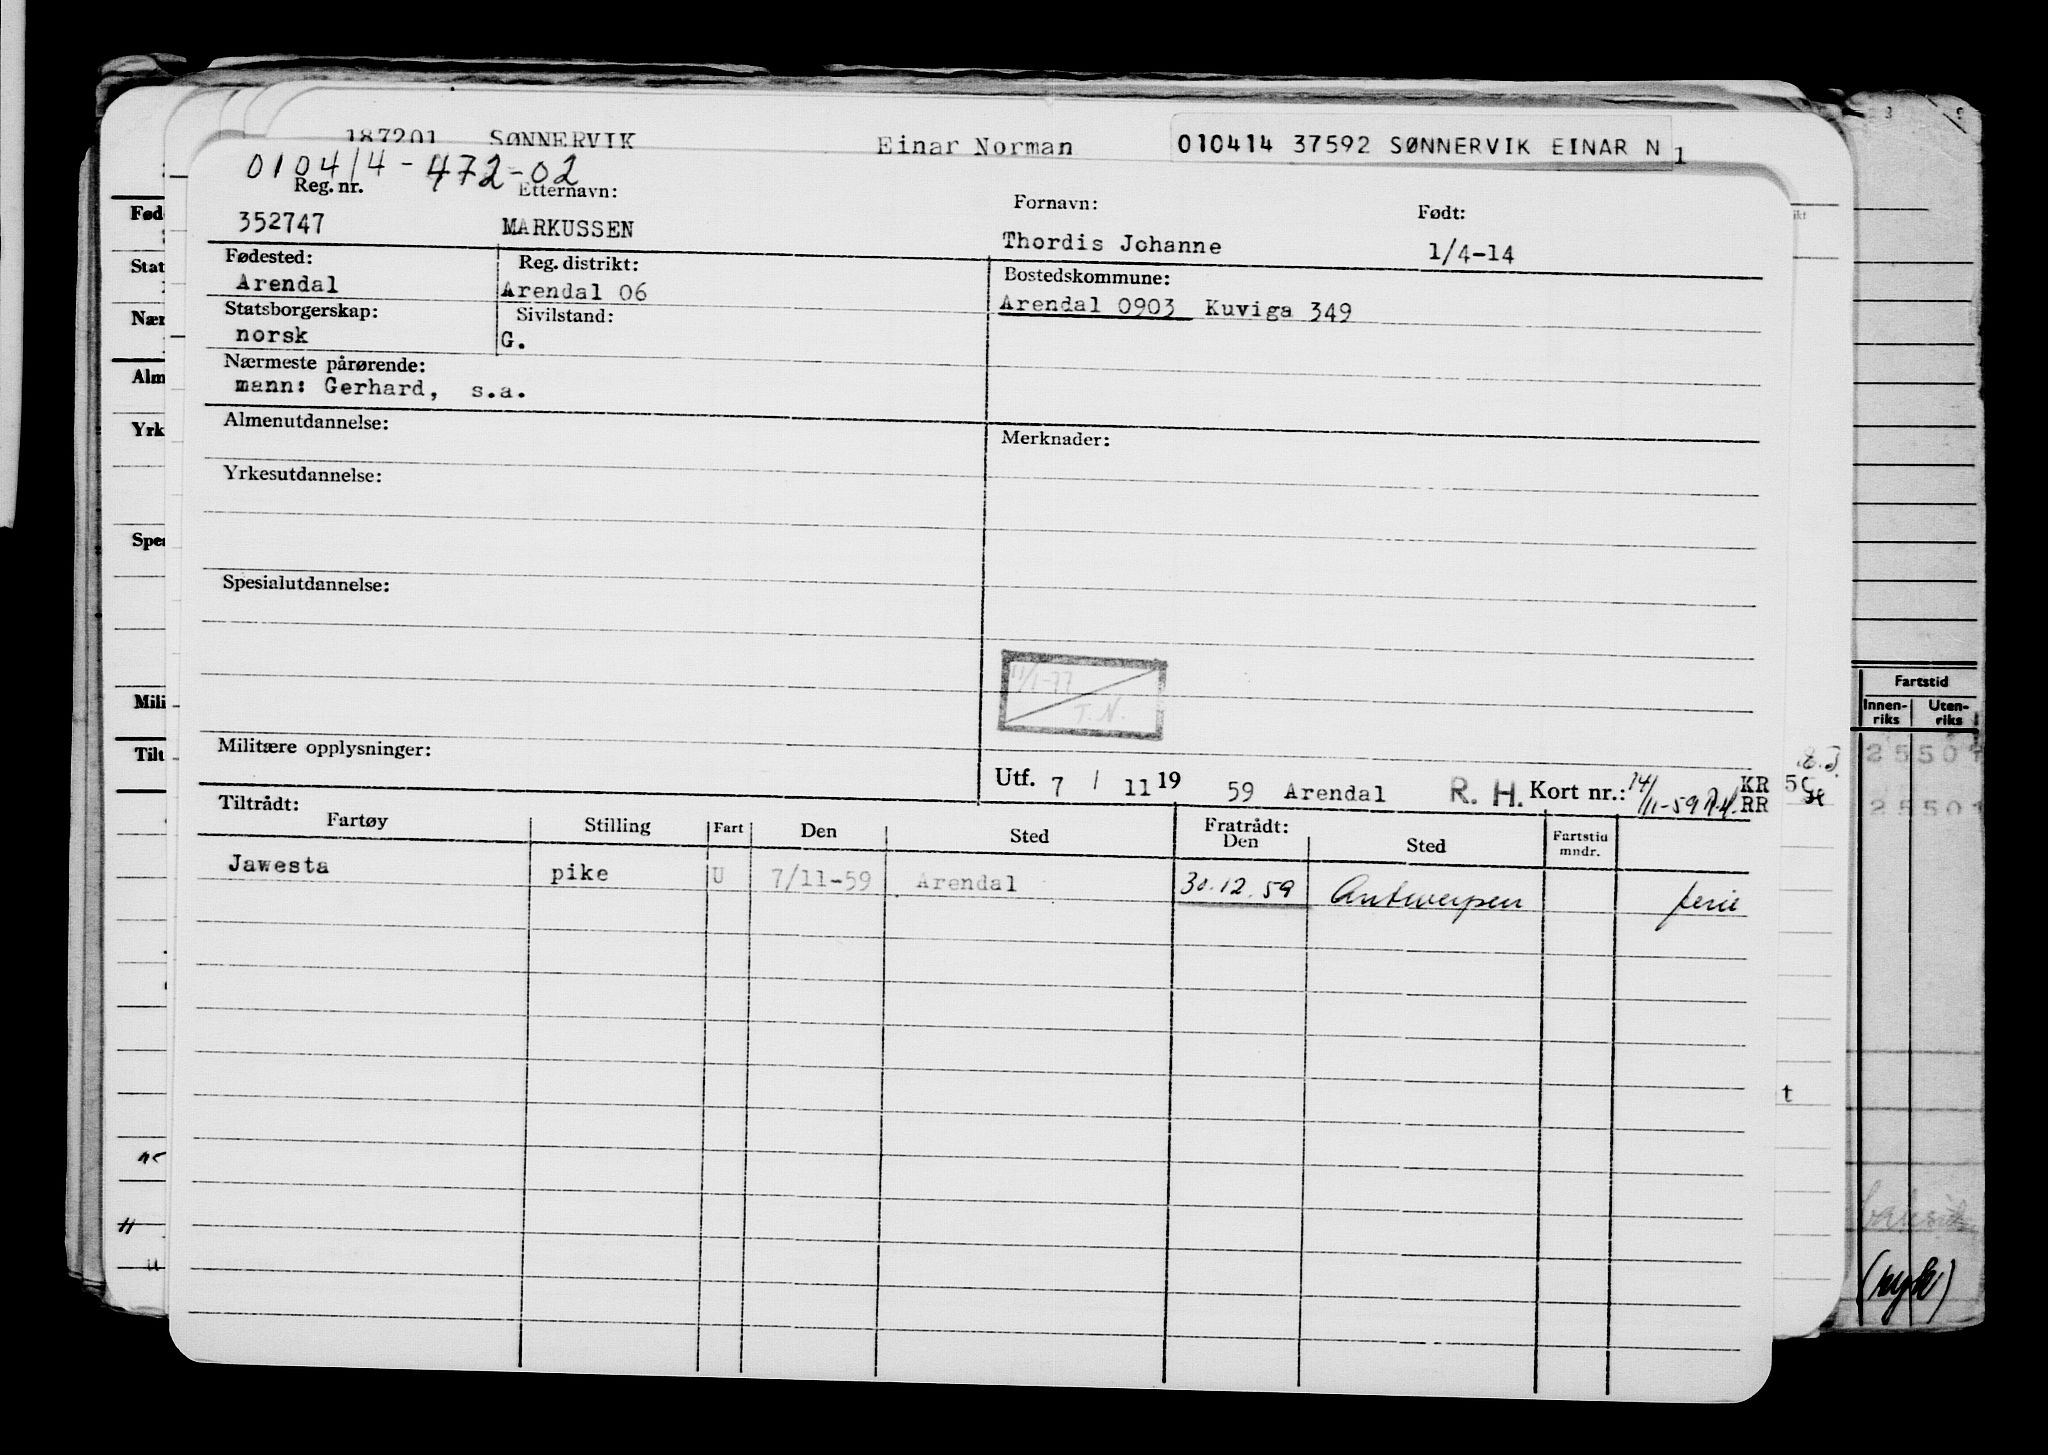 187201 SØNNERVIK Einar Norman 010414 37592 SØNNERVIK EINAR N 1
010414-472-02
Reg. nr. Etternavn: Fornavn: Født:
352747 MARKUSSEN Thordis Johanne 1/4-14
Fødested: Reg. distrikt: Bostedskommune:
Arendal Arendal 06 Arendal 0903 Kuviga 349
Statsborgerskap: Sivilstand:
norsk G.
Nærmeste pårørende:
mann: Gerhard, s.a.
Almenutdannelse: Merknader:
Yrkesutdannelse:
Spesialutdannelse:
11/1-77
T.N.
Militære opplysninger:
Utf. 7 / 11 19 59 Arendal R. H. Kort nr.: 14/11-59 KR
RR
Tiltrådt: Fratrådt:
Fartøy Stilling Fart Den Sted Den Sted Fartstid mndr.
Jawesta pike U 7/11-59 Arendal 30.12.59 Antwerpen ferie
Fød
Stat
Nær
Alm
Yrk
Spe
Mili
Tilt
Fartstid
Innen-riks Uten-riks
25501
25501
t